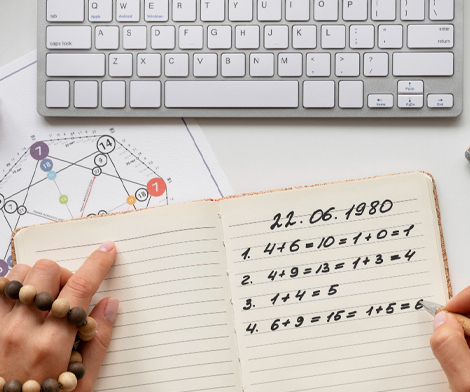 tab Q W E R T Y U I O P
caps lock A S D F G H J K L enter return
Z X C V B N M < > ?
14
7
18
9
7
18
7
22.06.1980
1. 4+6=10=1+0=1
2. 4+9=13=1+3=4
3. 1+4=5
4. 6+9=15=1+5=6